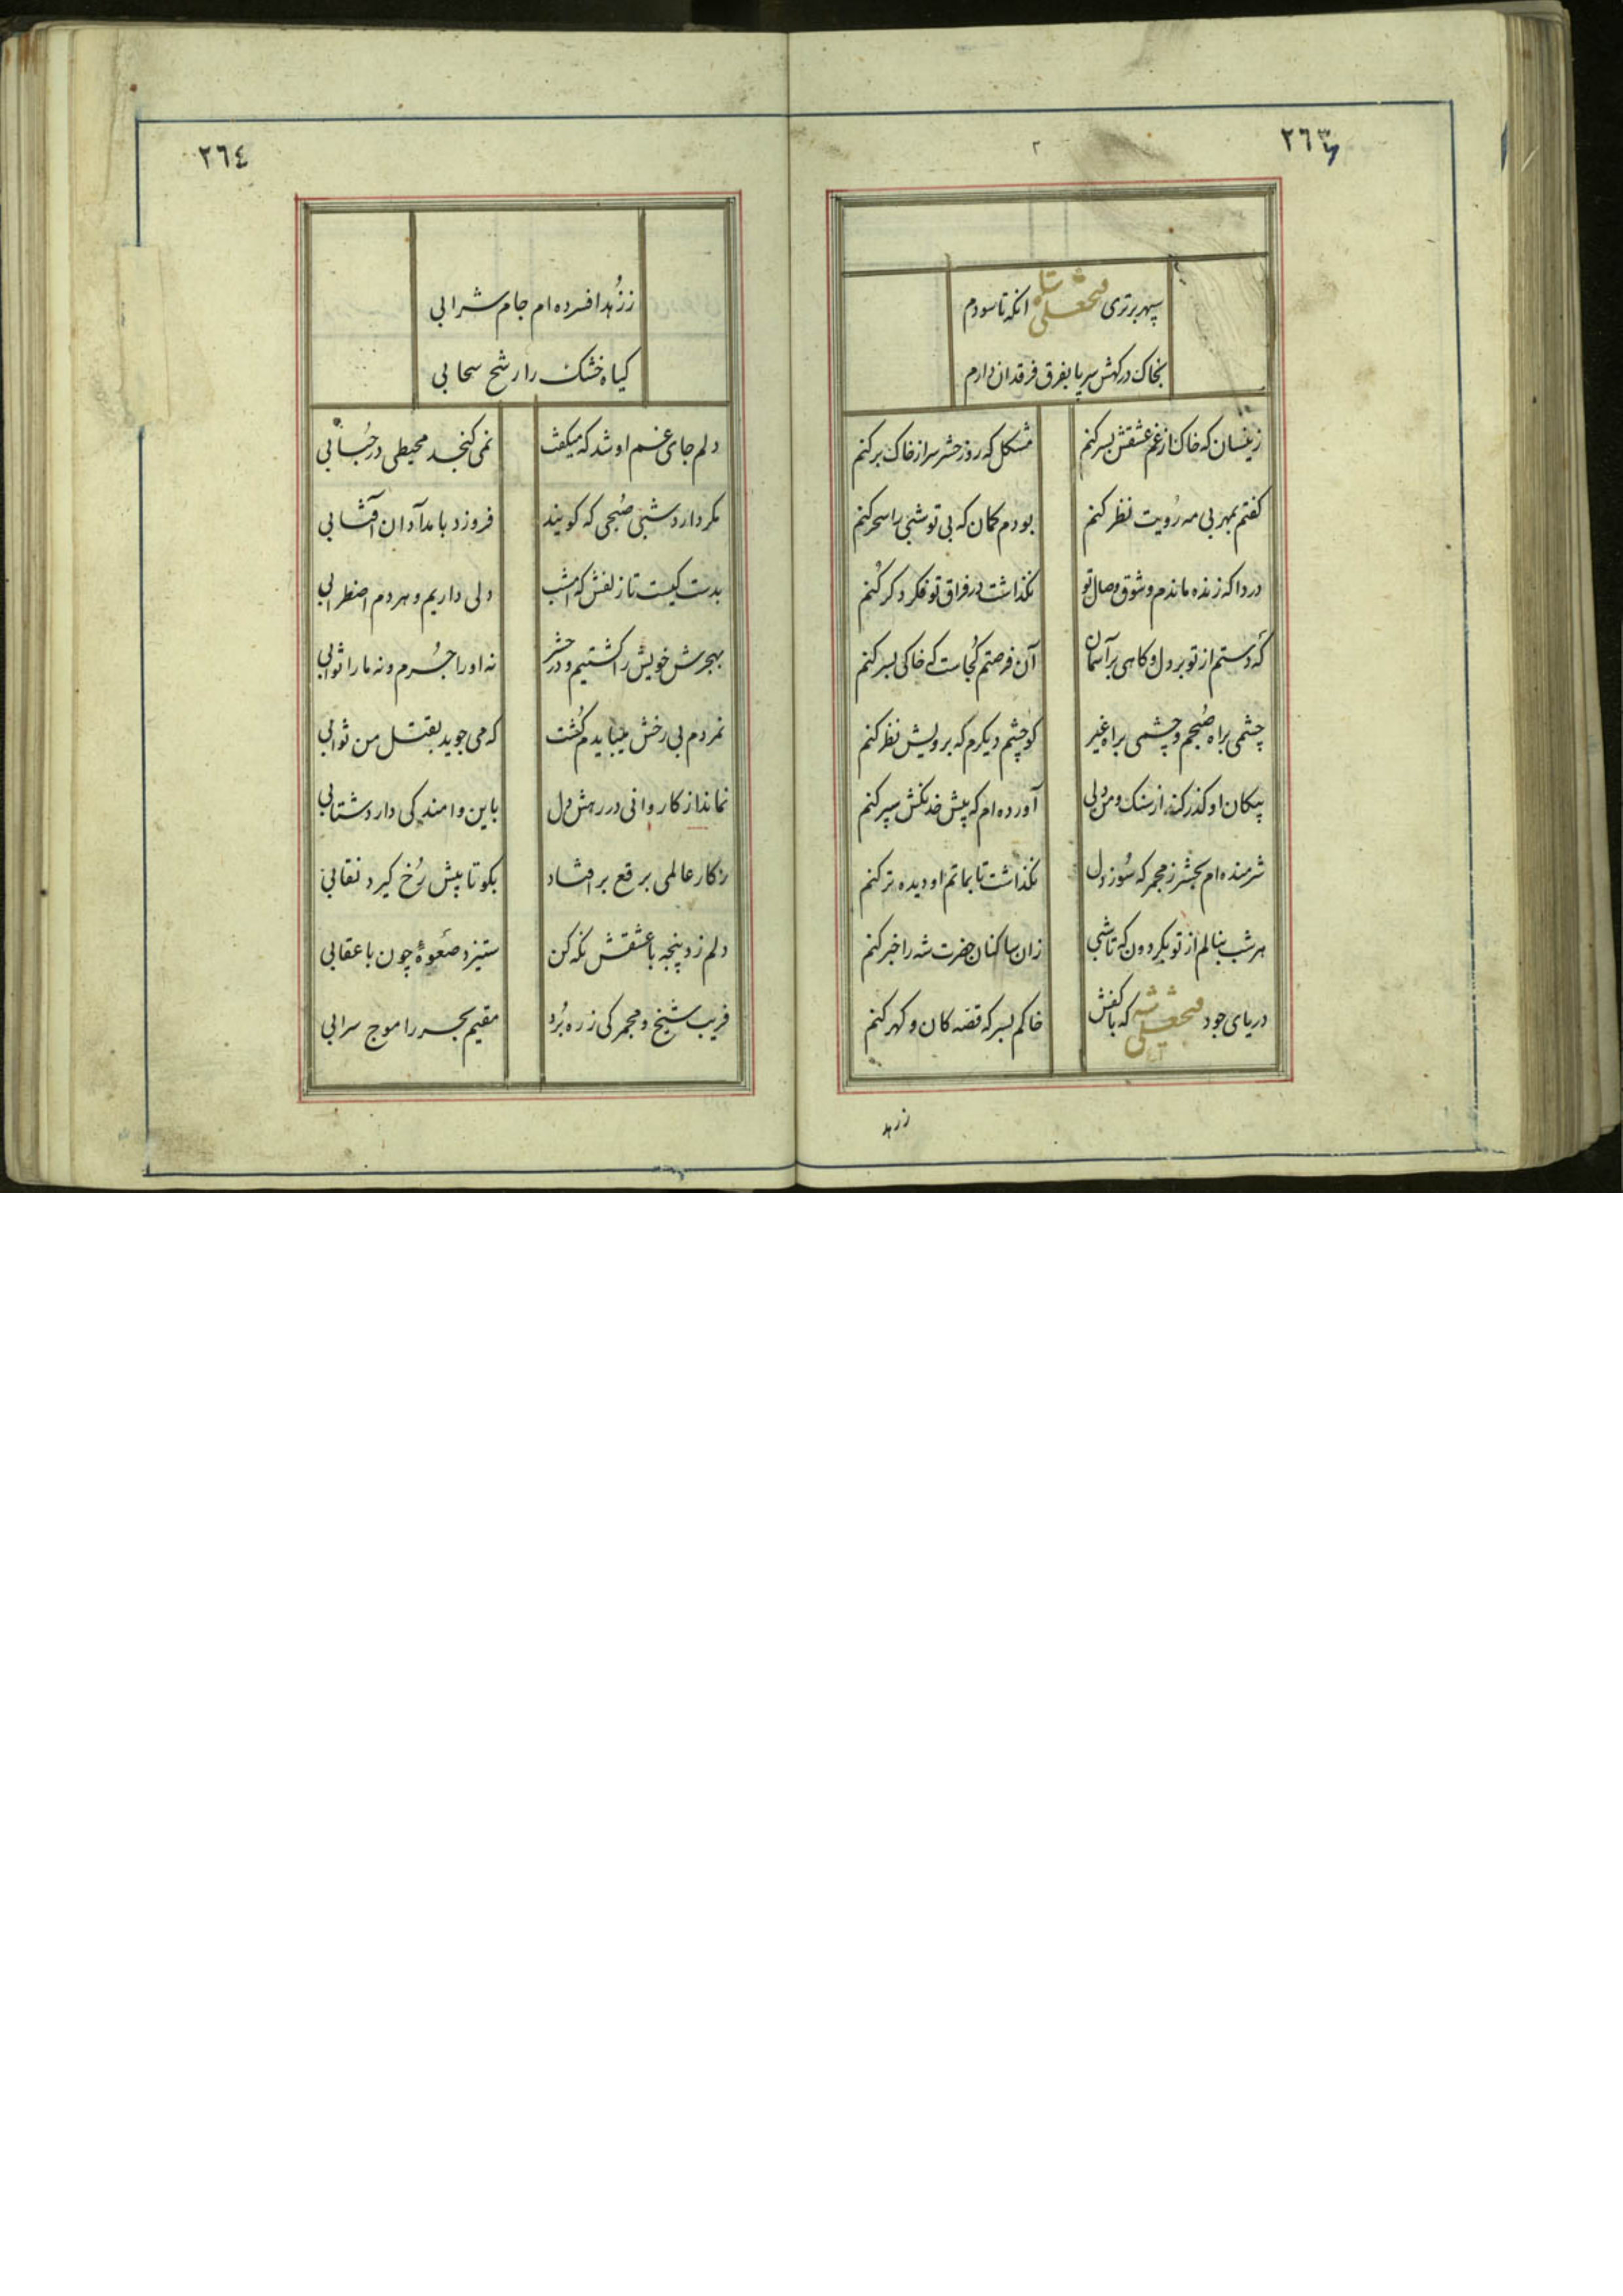 ٢٦٣
٢
سپهر برتری فتحعلی شاه انکه تا سودم
بخاک درکهش سر پا بفرق فرقدان دارم
زینسان که خاک از غم عشقش بسر کنم مشکل که روز حشر سر از خاک بر کنم
کفتم بمهر بی مه رویت نظر کنم بودم کمان که بی تو شبی را سحر کنم
دردا که زنده ماندم و شوق وصال تو نکذاشت در فراق تو فکر دکر کنم
که دستم از تو بر دل و کاهی بر آسمان آن فرصتم کجاست که خاکی بسر کنم
چشمی براه صبحم و چشمی براه غیر کو چشم دیکرم که برویش نظر کنم
پیکان او کذر کند از سنک و من دلی آورده‌ام که پیش خدنکش سپر کنم
شرمنده‌ام بحشر ز مجمر که سوز دل نکذاشت تا بماتم او دیده تر کنم
هر شب بنالم از تو بکردون که تا شبی زان ساکنان حضرت شه را خبر کنم
دریای جود فتحعلی شه که با کفش خاکم بسر که قصه کان و کهر کنم
ززهد
٢٦٤
ز زُهد افسرده‌ام جام شرابی
کیاه خشک را رشح سحابی
دلم جای غم او شد که میکفت نمی کنجد محیطی در حُبابی
مکر دارد شبی صُبحی که کویند فروزد بامدادان آفتابی
بدست کیست تا زلفش که امشب دلی داریم و هر دم اضطرابی
بهجرش خویش را کشتیم و در حشر نه او را جُرم و نه ما را ثوابی
نمردم بی رخش میبایدم کُشت که می جوید بقتل من ثوابی
نماند از کاروانی در رهش دل باین واماندکی دارد شتابی
ز کار عالمی برقع بر افتاد بکو تا پیش رُخ کیرد نقابی
دلم زد پنجه با عشقش نکه کن ستیزد صَعوهٔ چون با عقابی
فریب شیخ و مجمر کی ز ره بُرد مقیم بحر را موج سرابی